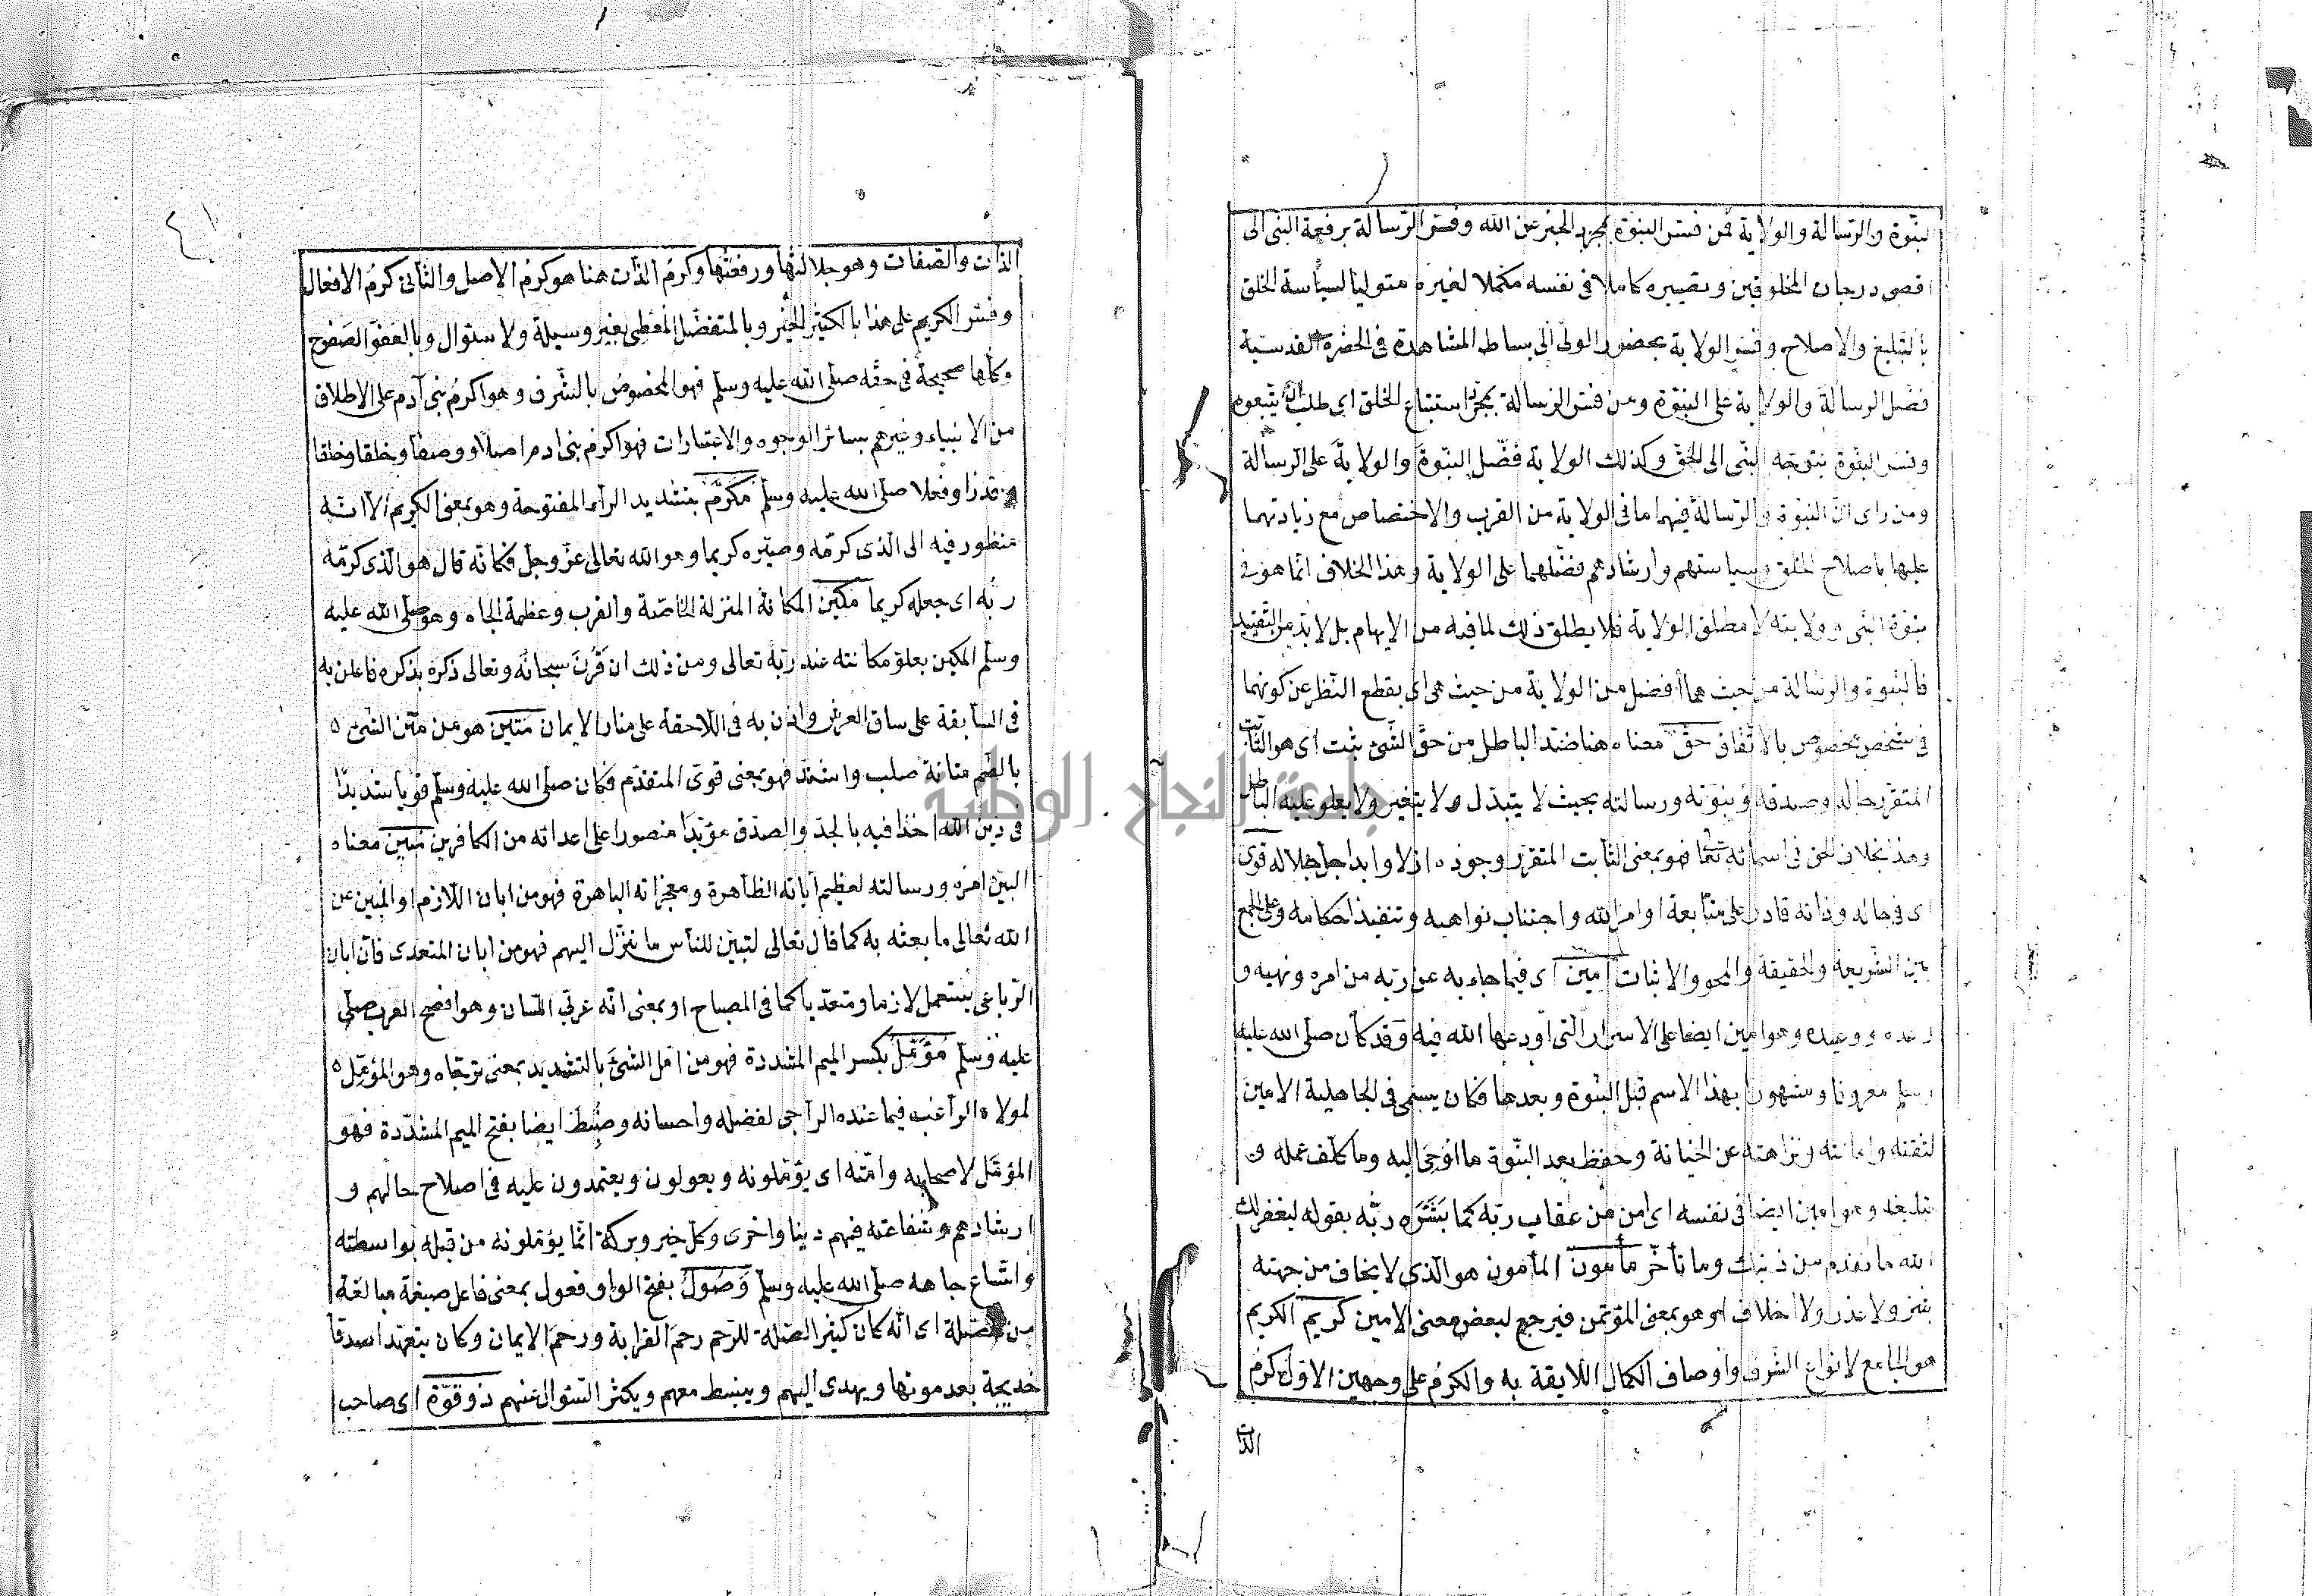 النبّوة والرّسالة والولاية فمن فسّر النبّوة بمجرد الخبر عن الله وفسّر الرّسالة برفعة النبى الى
اقصى درجات المخلوقين وتصييره كاملا فى نفسه مكمّلا لغيره متوليا لسياسة الخلق
بالتبليغ والاصلاح وفسّر الولاية بحضور الولىّ الى بساط المشاهدة فى الحضرة القدسيّة
فضّل الرسالة والولاية على النبّوة ومن فسّر الرسالة بمجرّد استتباع الخلق اى طلب ان يتّبعوه
وفسّر النبوّة بتوجّه النبّى الى الحقّ وكذلك الولاية فضّل النبّوة والولاية على الرّسالة
ومن راى انّ النبّوة والرّسالة فيهما ما فى الولاية من القرب والاختصاص مع زيادتهما
عليها باصلاح الخلق وسياستهم وارشادهم فضّلهما على الولاية وهذا الخلاف انّما هو فى
نبوّة النبى وولايته لا مطلق الولاية فلا يطلق ذلك لما فيه من الايهام بل لا بدّ من التّقييد
فالنبّوة والرسالة من حيث هما افضل من الولاية من حيث هى اى بقطع النّظر عن كونهما
فى شخص مخصوص بالاتّفاق حقّ معناه هنا ضدّ الباطل من حقّ الشّئ ثبت اى هو الثّابت
المتقرّر حاله وصدقه ونبوّته ورسالته بحيث لا يتبدّل ولا يتغير ولا يعلو عليه الباطل
وهذا بخلاف الحق فى اسمائه تعالى فهو بمعنى الثّابت المتقرّر وجوده ازلا وابدا جلّ جلاله قوىّ
اى فى حاله وذاته قادر على متابعة اوامر الله واجتناب نواهيه وتنفيذ احكامه وعلى الجمع
بين الشّريعة والحقيقة والمحو والاثبات امين اى فيما جاء به عن ربّه من امره ونهيه و
وعده ووعيده وهو امين ايضا على الاسرار الّتى اودعها الله فيه وقد كان صلّى الله عليه
وسلم معروفا ومشهورا بهذا الاسم قبل النبّوة وبعدها فكان يسمّى فى الجاهلية الامين
لثقته وامانته ونزاهته عن الخيانة وحفظ بعد النبّوة ما اُوحى اليه وما كلّف عمله و
تبليغه وهو امين ايضا فى نفسه اى امن من عقاب ربّه كما بشّره ربّه بقوله ليغفر لك
الله ما تقدم من ذنبك وما تأخّر مأمون المأمون هو الّذى لا يخاف من جهته
شر ولا غدر ولا اخلاف او هو بمعنى المؤتمن فيرجع لبعض معنى الامين كريم الكريم
هو الجامع لانواع الشّرف واوصاف الكمال اللايقة به والكرم على وجهين الاوّل كرم
الذات
الذات والصّفات وهو جلالتها ورفعتها وكرم الذّات هنا هو كرم الاصل والثّانى كرم الافعال
وفسّر الكريم على هذا بالكثير الخير وبالمتفضّل المعطى بغير وسيلة ولا سئوال وبالعفوّ الصّفوح
وكلّها صحيحة فى حقّه صلّى الله عليه وسلّم فهو المخصوص بالشّرف وهو اكرم بنى آدم على الاطلاق
من الانبياء وغيرهم بسائر الوجوه والاعتبارات فهو اكرم بنى ادم اصلا ووصفا وخلقا وخلقا
وقدرا وفعلا صلّى الله عليه وسلّم مكرّم بتشديد الراء المفتوحة وهو بمعنى الكريم الّا انّه
منظور فيه الى الّذى كرّمه وصيّره كريما وهو الله تعالى عزّ وجلّ فكانّه قال هو الّذى كرّمه
ربّه اى جعله كريما مكين المكانة المنزلة الخاصّة والقرب وعظمة الجاه وهو صلّى الله عليه
وسلّم المكين بعلوّ مكانته عند ربّه تعالى ومن ذلك ان قَرَنَ سبحانه وتعالى ذكره بذكره فاعلن به
فى السّابقة على ساق العرش واذن به فى اللّاحقة على منار الايمان متين هو من متُن الشّئ ٥
بالضّم متانة صلب واشتدّ فهو بمعنى قوىّ المتقدّم فكان صلّى الله عليه وسلّم قويّا شديدا
فى دين الله اخذا فيه بالجدّ والصدق مؤيّدا منصورا على اعدائه من الكافرين مبين معناه
البيّن امره ورسالته لعظيم آياته الظّاهرة ومعجزاته الباهرة فهو من ابان اللّازم او المبين عن
الله تعالى ما بعثه به كما قال تعالى لتبيّن للنّاس ما نزّل اليهم فهو من ابان المتعدى فانّ ابان
الرّباعى يستعمل لازما ومتعدّيا كما فى المصباح او بمعنى انّه عربّى اللّسان وهو افصح العرب صلّى
عليه وسلّم مُؤمِّلٌ بكسر الميم المشددة فهو من امّل الشئ بالتشديد بمعنى ترجّاه وهو المؤمّل ٥
لمولاه الراغب فيما عنده الراجى لفضله واحسانه وضُبِط ايضا بفتح الميم المشدّدة فهو
المؤمّل لاصحابه وامّته اى يؤمّلونه ويعولون ويعتمدون عليه فى اصلاح حالهم و
ارشادهم وشفاعته فيهم دينا واخرى وكلّ خير وبركة انّما يؤمّلونه من قبله بواسطته
واتّساع جاهه صلّى الله عليه وسلّم وَصُولٌ بفتح الواو فعول بمعنى فاعل صيغة مبالغة
من الصّلة اى انّه كان كثير الصّلة للرّحم رحم القرابة ورحم الايمان وكان يتعهّد اصدقآ
خديجة بعد موتها ويهدى اليهم وينبسط معهم ويكثر السّئوال عنهم ذو قوّة اى صاحب
جامعة النجاح الوطنية